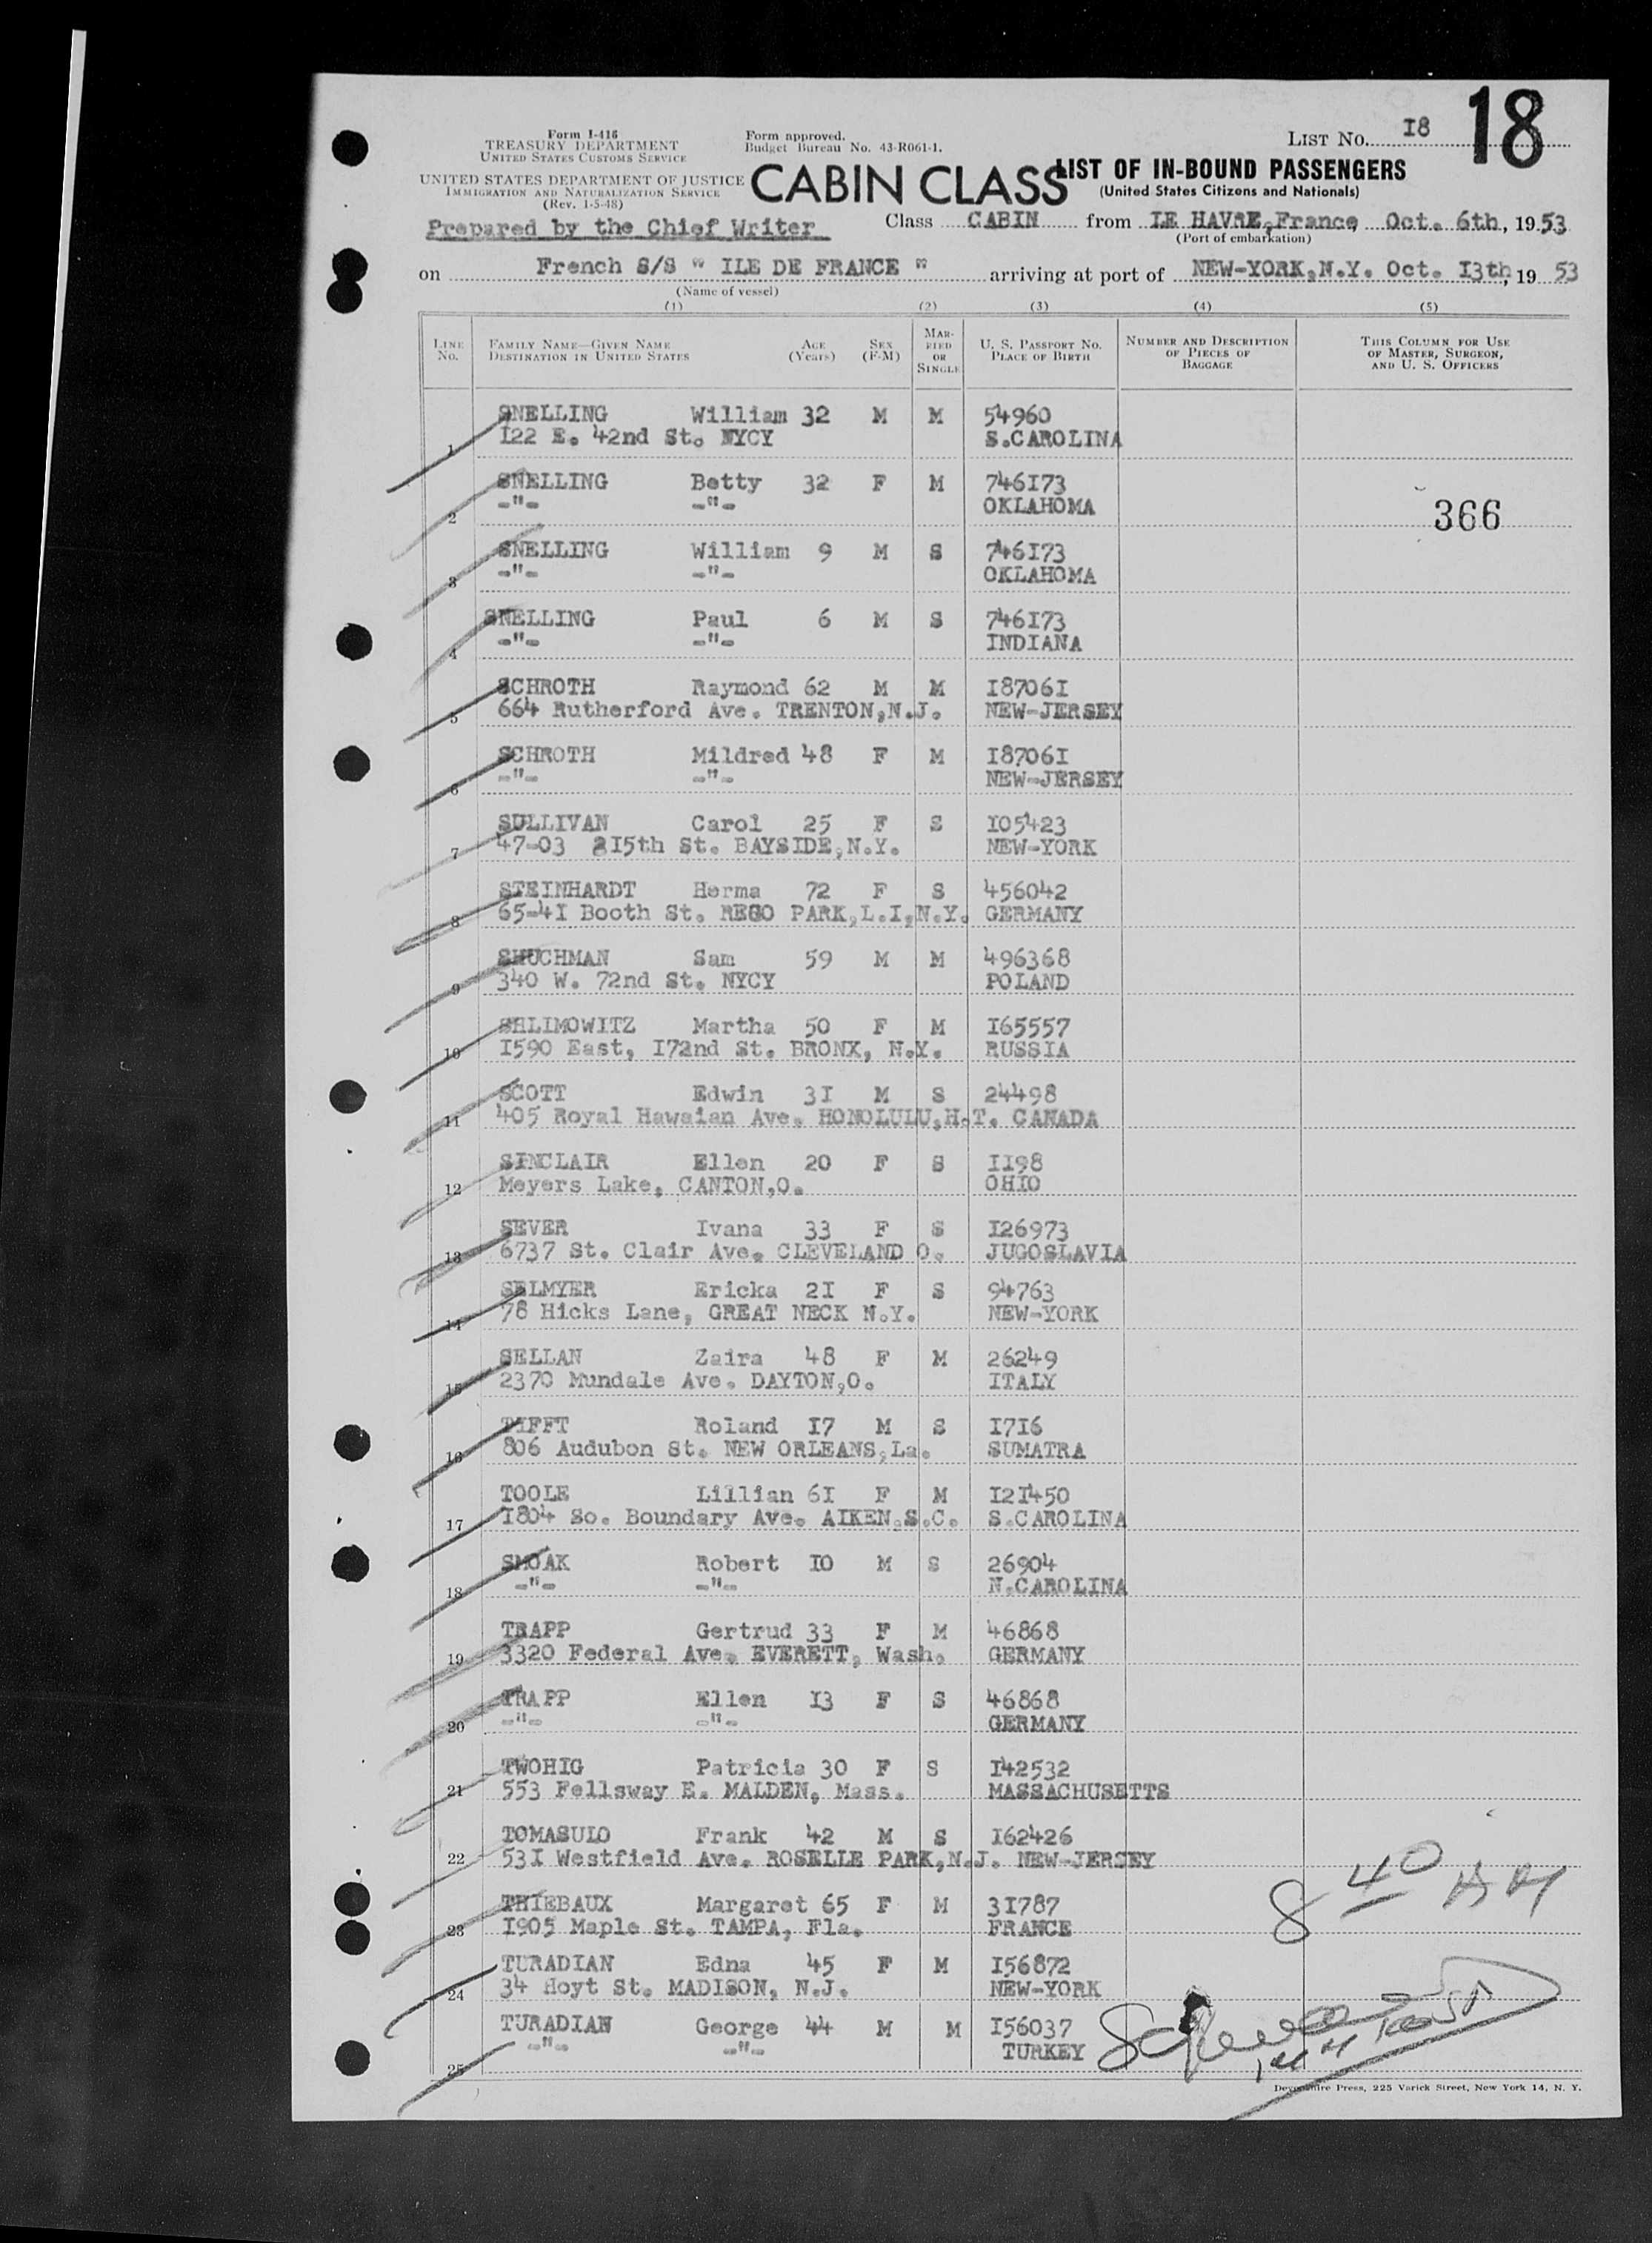 Form I-416
TREASURY DEPARTMENT
UNITED STATES CUSTOMS SERVICE
UNITED STATES DEPARTMENT OF JUSTICE
IMMIGRATION AND NATURALIZATION SERVICE
(Rev. 1-5-48)
Form approved.
Budget Bureau No. 43-R061-1.
LIST No. I8 18
CABIN CLASS LIST OF IN-BOUND PASSENGERS
(United States Citizens and Nationals)
Prepared by the Chief Writer Class CABIN from LE HAVRE,France, Oct. 6th, 19 53
(Port of embarkation)
on French S/S " ILE DE FRANCE " arriving at port of NEW-YORK,N.Y. Oct. I3th, 19 53
(Name of vessel)
(1) (2) (3) (4) (5)
LINE No. FAMILY NAME—GIVEN NAME DESTINATION IN UNITED STATES AGE (Years) SEX (F-M) MARRIED OR SINGLE U. S. PASSPORT No. PLACE OF BIRTH NUMBER AND DESCRIPTION OF PIECES OF BAGGAGE THIS COLUMN FOR USE OF MASTER, SURGEON, AND U. S. OFFICERS
SNELLING William 32 M M 54960
1 I22 E. 42nd St. NYCY S.CAROLINA
SNELLING Betty 32 F M 746I73
2 -"- -"- OKLAHOMA 366
SNELLING William 9 M S 746I73
3 -"- -"- OKLAHOMA
SNELLING Paul 6 M S 746I73
4 -"- -"- INDIANA
SCHROTH Raymond 62 M M I8706I
5 664 Rutherford Ave. TRENTON,N.J. NEW-JERSEY
SCHROTH Mildred 48 F M I8706I
6 -"- -"- NEW-JERSEY
SULLIVAN Carol 25 F S I05423
7 47-03 2I5th St. BAYSIDE,N.Y. NEW-YORK
STEINHARDT Herma 72 F S 456042
8 65-4I Booth St. REGO PARK,L.I,N.Y. GERMANY
SHUCHMAN Sam 59 M M 496368
9 340 W. 72nd St. NYCY POLAND
SHLIMOWITZ Martha 50 F M I65557
10 I590 East, I72nd St. BRONX, N.Y. RUSSIA
SCOTT Edwin 3I M S 24498
11 405 Royal Hawaian Ave. HONOLULU,H.T. CANADA
SINCLAIR Ellen 20 F S II98
12 Meyers Lake, CANTON,O. OHIO
SEVER Ivana 33 F S I26973
13 6737 St. Clair Ave. CLEVELAND O. JUGOSLAVIA
SELMYER Ericka 2I F S 94763
14 78 Hicks Lane, GREAT NECK N.Y. NEW-YORK
SELLAN Zaira 48 F M 26249
15 2370 Mundale Ave. DAYTON,O. ITALY
TIFFT Roland I7 M S I7I6
16 806 Audubon St. NEW ORLEANS,La. SUMATRA
TOOLE Lillian 6I F M I2I450
17 I804 So. Boundary Ave. AIKEN.S.C. S.CAROLINA
SMOAK Robert IO M S 26904
18 -"- -"- N.CAROLINA
TRAPP Gertrud 33 F M 46868
19 3320 Federal Ave. EVERETT, Wash. GERMANY
TRAPP Ellen I3 F S 46868
20 -"- -"- GERMANY
TWOHIG Patricia 30 F S I42532
21 553 Fellsway E. MALDEN, Mass. MASSACHUSETTS
TOMASULO Frank 42 M S I62426
22 53I Westfield Ave. ROSELLE PARK,N.J. NEW-JERSEY
8 40 AM
THIEBAUX Margaret 65 F M 3I787
23 I905 Maple St. TAMPA, Fla. FRANCE
TURADIAN Edna 45 F M I56872
24 34 Hoyt St. MADISON, N.J. NEW-YORK
TURADIAN George 44 M M I56037
25 -"- -"- TURKEY
Devonshire Press, 225 Varick Street, New York 14, N. Y.